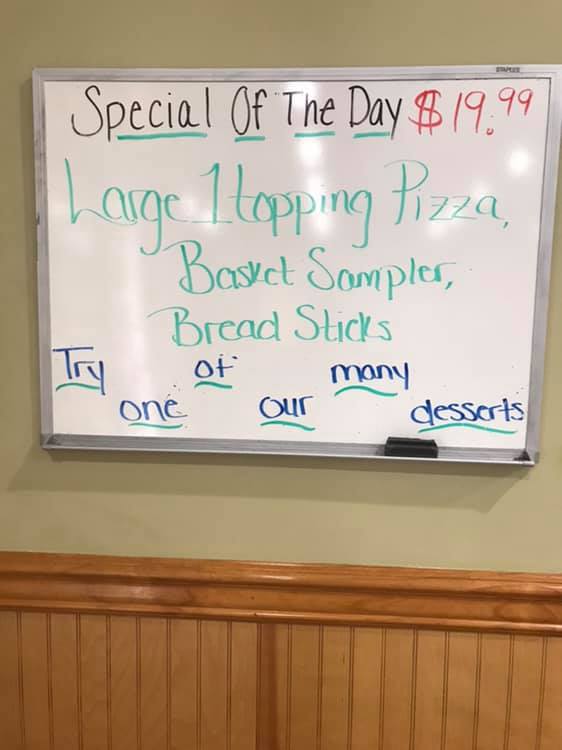 STAPLES
Special Of The Day $19.99
Large 1 topping Pizza,
Basket Sampler,
Bread Sticks
Try one of our many desserts